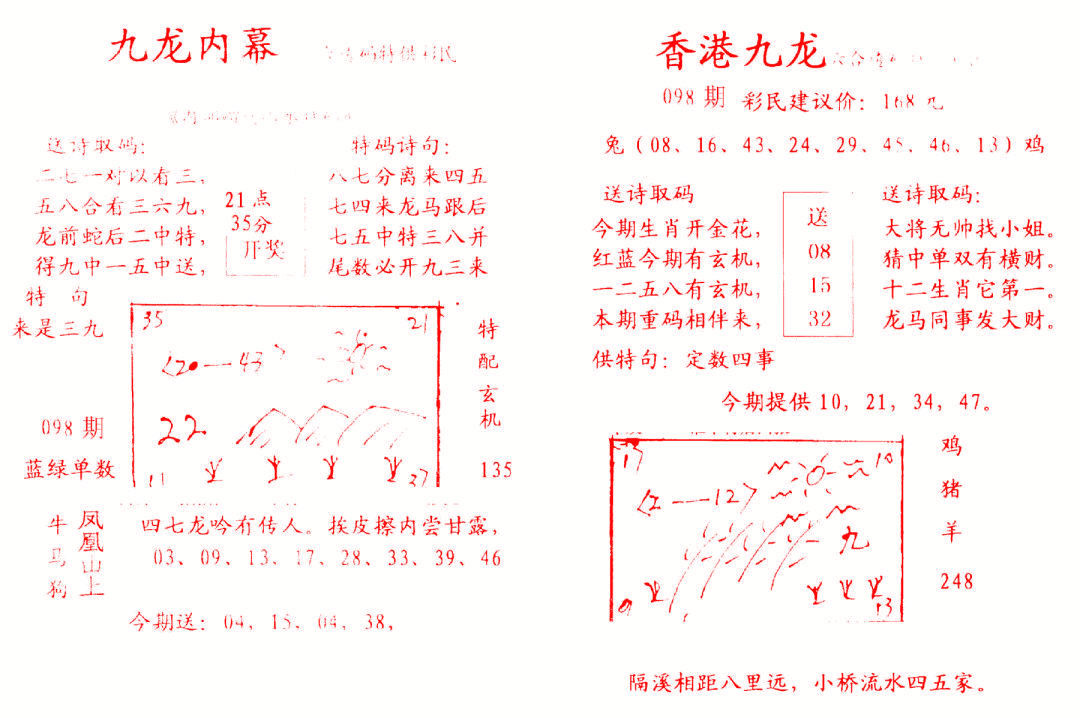 九龙内幕
送诗取码：
二七一对以有三，
五八合有三六九，
龙前蛇后二中特，
得九中一五中送，
21点
35分
开奖
特码诗句：
八七分离来四五
七四来龙马跟后
七五中特三八并
尾数必开九三来
特 句
来是三九
098 期
蓝绿单数
35 21
<20—43>
22
11 37
特
配
玄
机
135
牛
马
狗
凤凰山上
四七龙吟有传人。挨皮擦内尝甘露，
03、09、13、17、28、33、39、46
今期送：04，15，04，38，
香港九龙
098 期 彩民建议价：168 元
兔（08、16、43、24、29、45、46、13）鸡
送诗取码
今期生肖开金花，
红蓝今期有玄机，
一二五八有玄机，
本期重码相伴来，
送
08
15
32
送诗取码：
大将无帅找小姐。
猜中单双有横财。
十二生肖它第一。
龙马同事发大财。
供特句：定数四事
今期提供10，21，34，47。
17 10
<2—12>
九
9 13
鸡
猪
羊
248
隔溪相距八里远，小桥流水四五家。